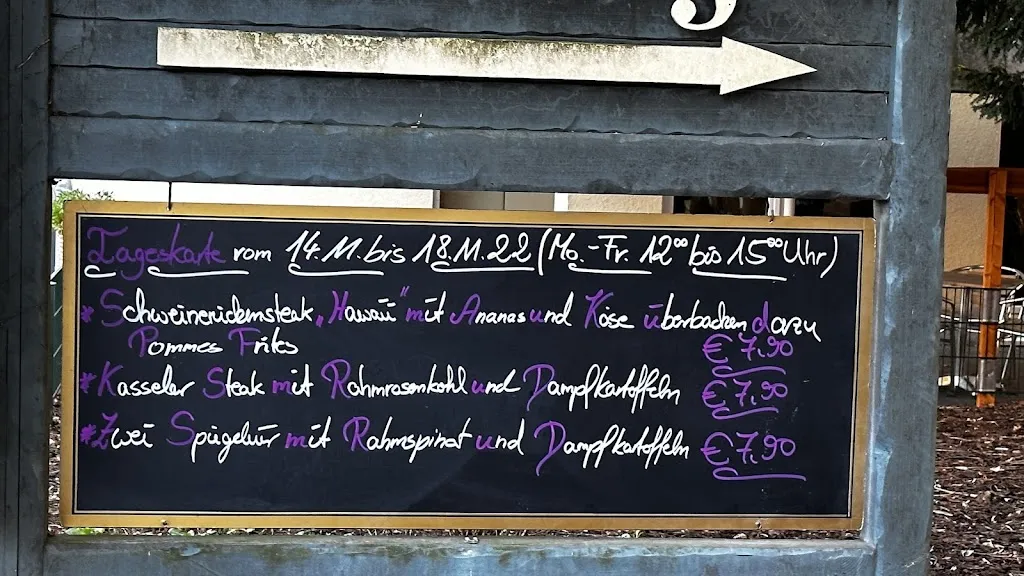 g
Tageskarte vom 14.11. bis 18.11.22 (Mo.-Fr. 12⁰⁰ bis 15⁰⁰ Uhr)
* Schweinerückensteak „Hawaii“ mit Ananas und Käse überbacken dazu
Pommes Frites
€ 7,90
* Kasseler Steak mit Rahmrosenkohl und Dampfkartoffeln € 7,90
* Zwei Spiegeleier mit Rahmspinat und Dampfkartoffeln € 7,90